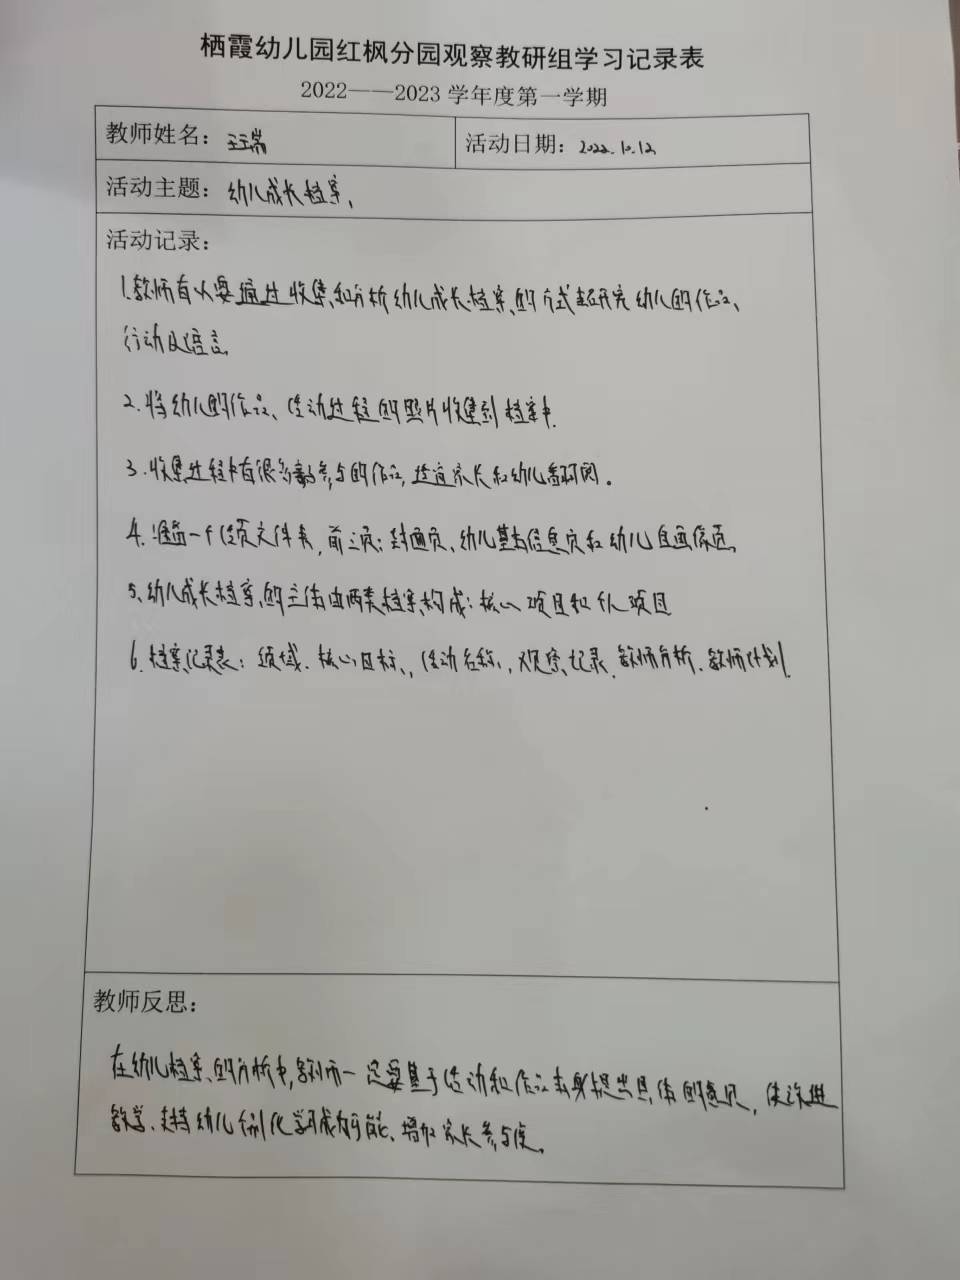 栖霞幼儿园红枫分园观察教研组学习记录表
2022——2023 学年度第一学期
教师姓名：王瑞
活动日期：2022.10.12
活动主题：幼儿成长档案、
活动记录：
1.教师首次要通过收集和分析幼儿成长档案的方式去研究幼儿的作品、
行动及语言。
2.将幼儿的作品、活动过程的照片收集到档案中.
3.收集过程中有很多参与的作品,适宜家长和幼儿翻阅。
4.准备一个活页文件夹,前三页:封面页、幼儿基本信息页和幼儿自画像页。
5、幼儿成长档案的主体由两类档案构成:核心项目和个人项目
6.档案记录表:领域、核心目标、活动名称、观察记录、教师分析、教师计划.
教师反思：
在幼儿档案的分析中,教师一定要基于活动和作品本身提出具体的意见,促进
教学、支持幼儿个别化学习成为可能、增加家长参与度。